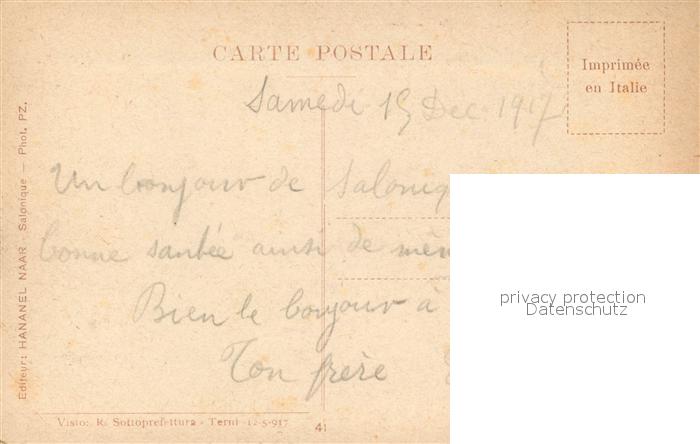 CARTE POSTALE
Imprimée
en Italie
Samedi 15 Dec. 1917
Un bonjour de Saloniq
bonne santée ainsi de mêm
Bien le bonjour à
Ton frère
privacy protection
Datenschutz
Editeur: HANANEL NAAR Salonique — Phot. PZ.
Visto: R. Sottoprefettura - Terni 12-5-917
41